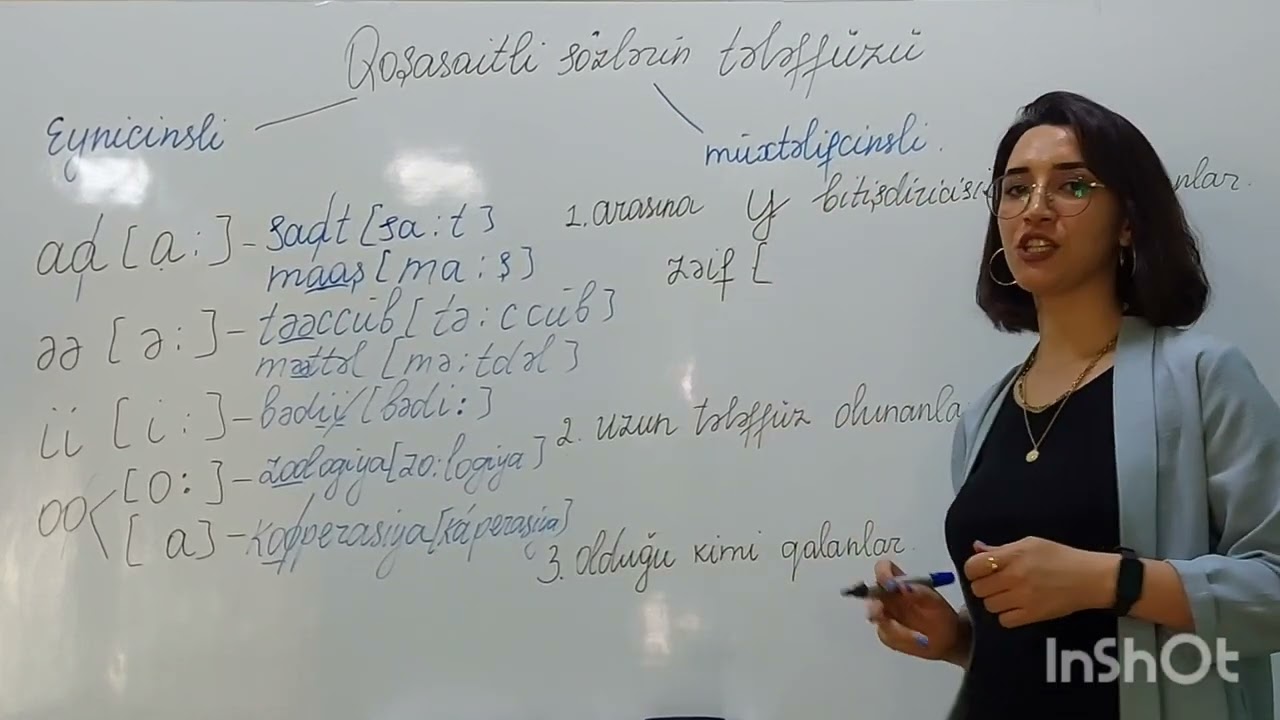 Qoşasaitli sözlərin tələffüzü
Eynicinsli
müxtəlifcinsli.
aa [a:] - saat [sa:t]
maaş [ma:ş]
əə [ə:] - təəccüb [tə:ccüb]
məəttəl [mə:tdəl]
ii [i:] - bədii [bədi:]
oo [o:] - zoologiya [zo:logiya]
[a] - kooperasiya [káperasiya]
1. arasına y bitişdiricisi nlar.
zəif [
2. uzun tələffüz olunanla
3. olduğu kimi qalanlar.
InShOt